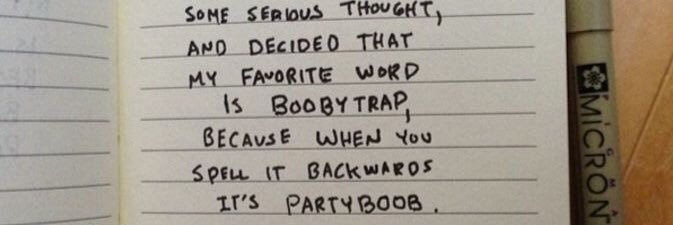 SOME SERIOUS THOUGHT,
AND DECIDED THAT
MY FAVORITE WORD
IS BOOBYTRAP,
BECAUSE WHEN YOU
SPELL IT BACKWARDS
IT'S PARTYBOOB.
MICRON